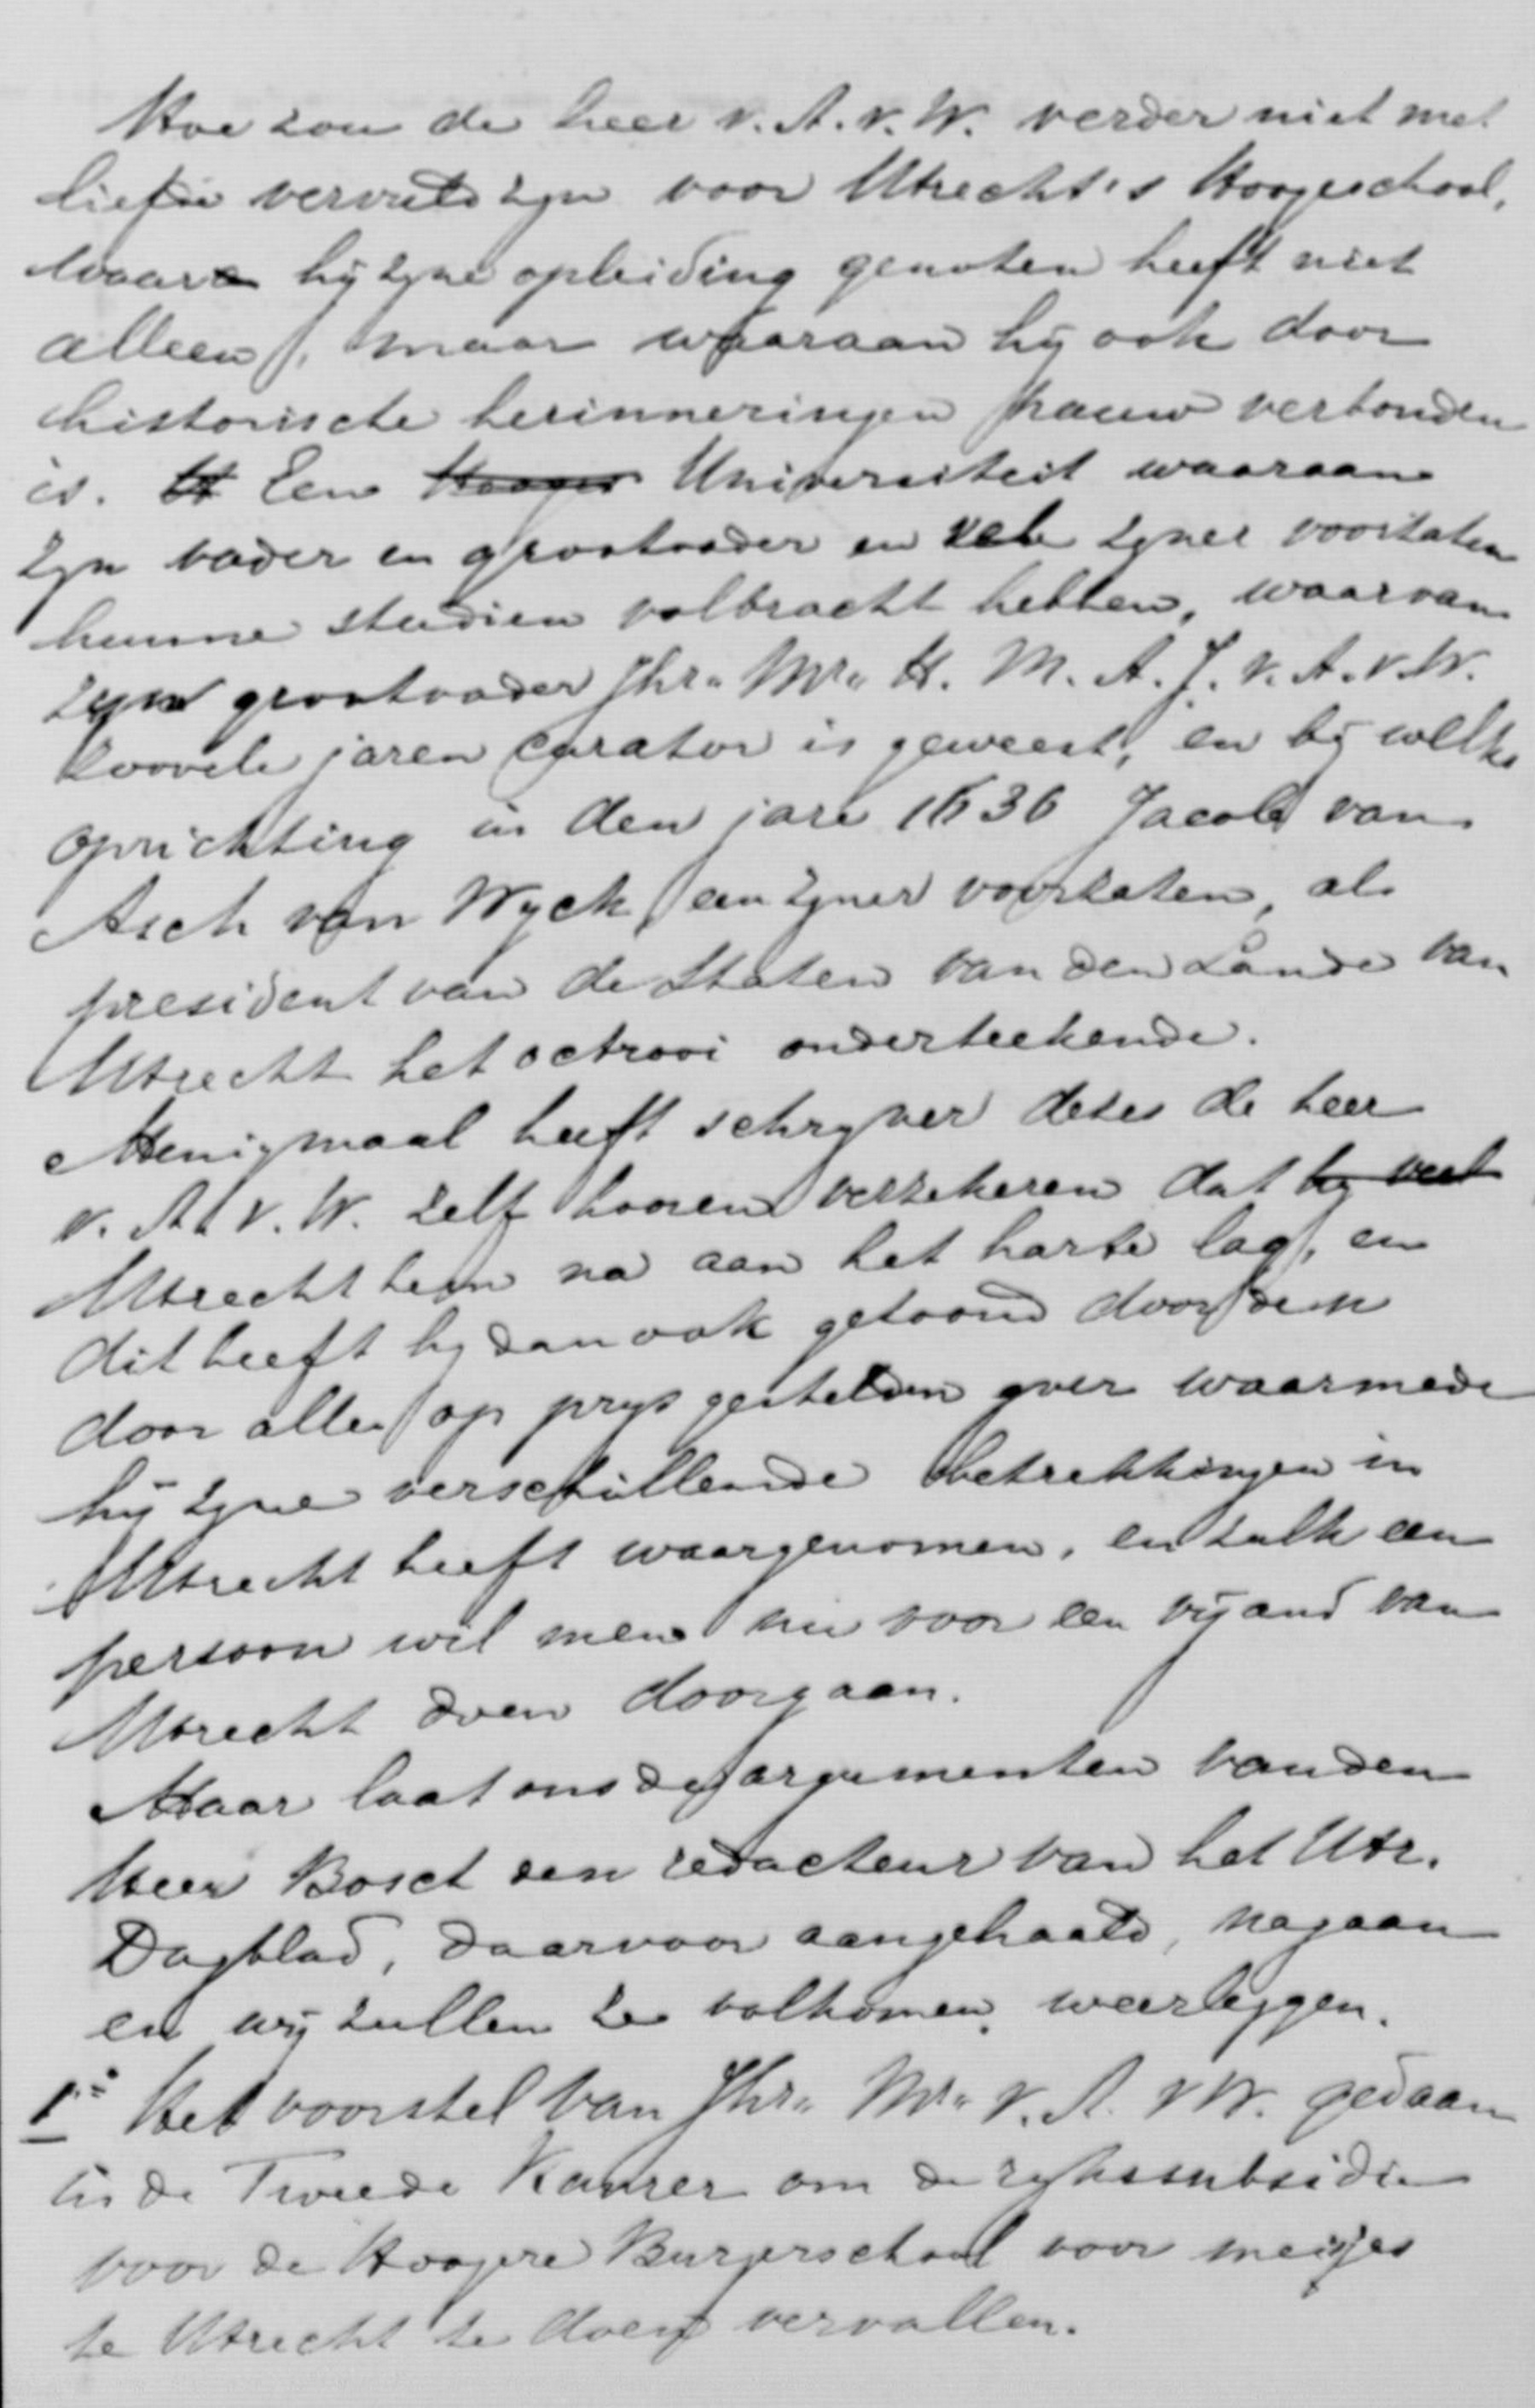 Hoe zou de heer v. A. v. W. verder niet met
liefde vervuld zyn voor Utrecht's Hoogeschool,
waar hy zyne opleiding genoten heeft niet
alleen, maar waaraan hij ook door
historische herinneringen nauw verbonden
is. H Een Hooges Universiteit waaraan
zyn vader en grootvader en vele zyner voorzaten
hunne studien volbracht hebben, waarvan
zyn grootvader Jhr. Mr. H. M. A. J. v. A. v. W.
zoovele jaren curator is geweest, en bij welks
oprichting in den jare 1636 Jacob van
Asch van Wyck een zyner voorzaten, als
president van de Staten van den Lande van
Utrecht het octrooi onderteekende.
Menigmaal heeft schryver dezes de heer
v. A. v. W. zelf hooren verzekeren dat hy veel
Utrecht hem na aan het harte lag, en
dit heeft hy dan ook getoond door den
door allen op prys gestelden yver waarmede
hij zyne verschillende betrekkingen in
Utrecht heeft waargenomen, en zulk een
persoon wil men nu voor een vyand van
Utrecht doen doorgaan.
Maar laat ons de argumenten van den
Heer Bosch den redacteur van het Utr.
Dagblad, daarvoor aangehaald, nagaan
en wij zullen ze volkomen weerleggen.
1o Het voorstel van Jhr. Mr. v. A. v W. gedaan
in de Tweede Kamer om de ryks subsidie
voor de Hoogere Burgerschool voor meisjes
te Utrecht te doen vervallen.